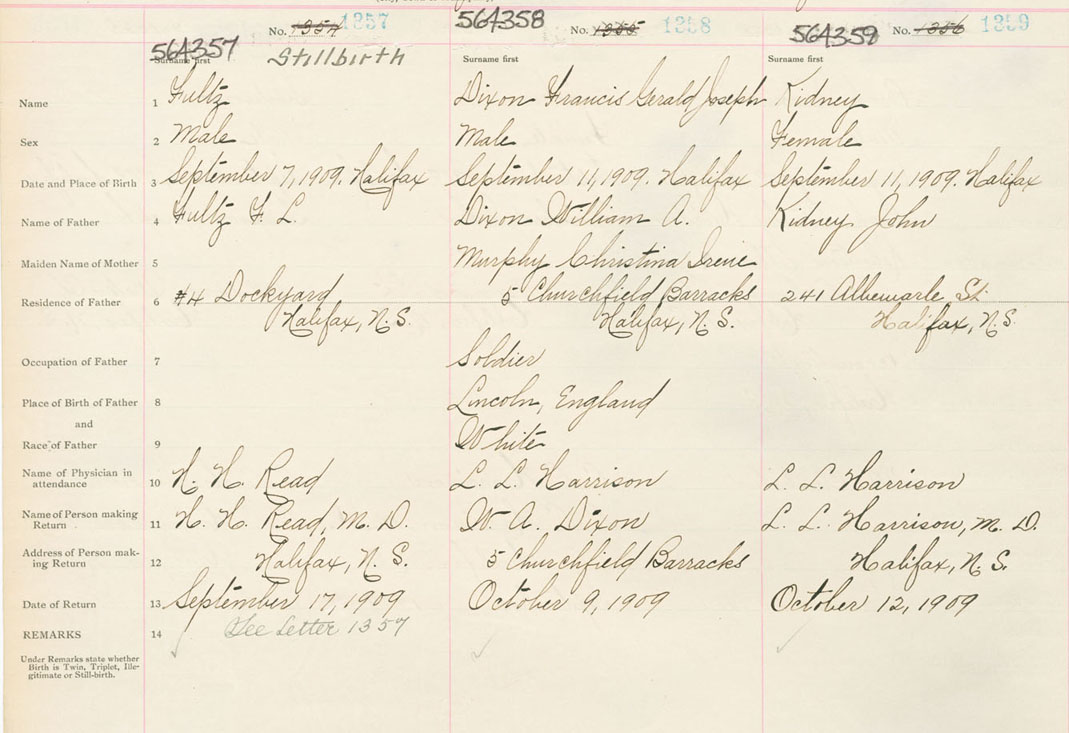 No. 1354 1357
No. 1355 1358
No. 1356 1359
564357
564358
564359
Stillbirth
Surname first
Surname first
Surname first
Name 1 Fultz Dixon Francis Gerald Joseph Kidney
Sex 2 Male Male Female
Date and Place of Birth 3 September 7, 1909. Halifax September 11, 1909. Halifax September 11, 1909. Halifax
Name of Father 4 Fultz F. L. Dixon William A. Kidney John
Maiden Name of Mother 5 Murphy Christina Irene
Residence of Father 6 #4 Dockyard 5 Churchfield Barracks 241 Albemarle St.
Halifax, N.S. Halifax, N.S. Halifax, N.S.
Occupation of Father 7 Soldier
Place of Birth of Father 8 Lincoln, England
and
Race of Father 9 White
Name of Physician in
attendance 10 H. H. Read L. L. Harrison L. L. Harrison
Name of Person making
Return 11 H. H. Read, M. D. W. A. Dixon L. L. Harrison, M. D.
Address of Person mak-
ing Return 12 Halifax, N.S. 5 Churchfield Barracks Halifax, N.S.
Date of Return 13 September 17, 1909 October 9, 1909 October 12, 1909
REMARKS 14 See Letter 1357
Under Remarks state whether
Birth is Twin, Triplet, Ille-
gitimate or Still-birth.